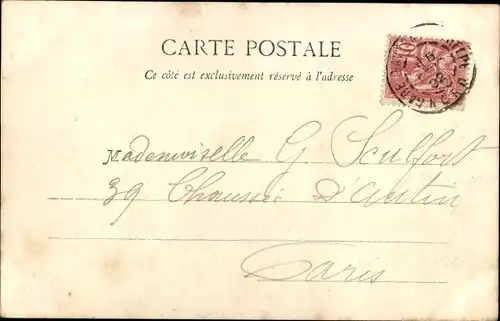 CARTE POSTALE
Ce côté est exclusivement réservé à l'adresse
10
Mademoiselle G. Sculfort
39 Chaussée D'Antin
Paris